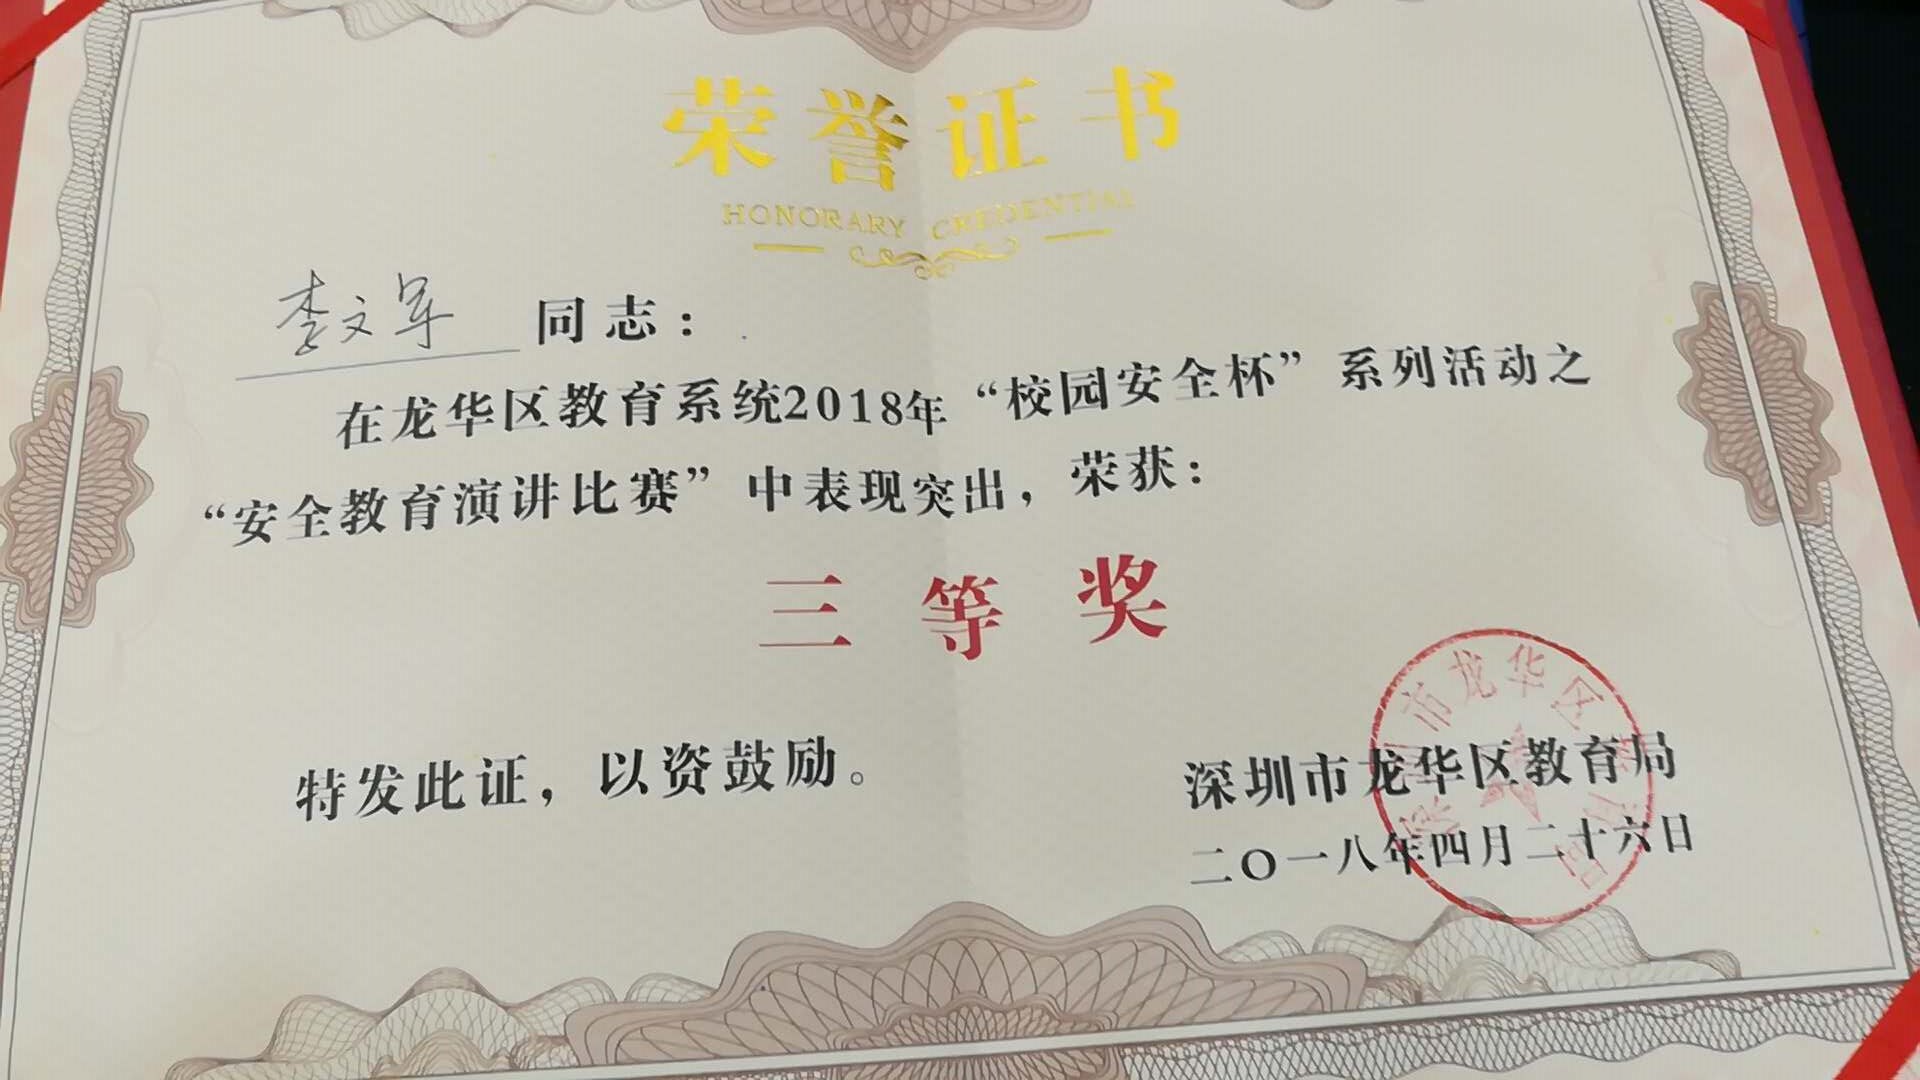 荣誉证书
HONORARY CREDENTIAL
李文军 同志：
在龙华区教育系统2018年“校园安全杯”系列活动之
“安全教育演讲比赛”中表现突出，荣获：
三等奖
特发此证，以资鼓励。
深圳市龙华区教育局
二〇一八年四月二十六日
深圳市龙华区教育局